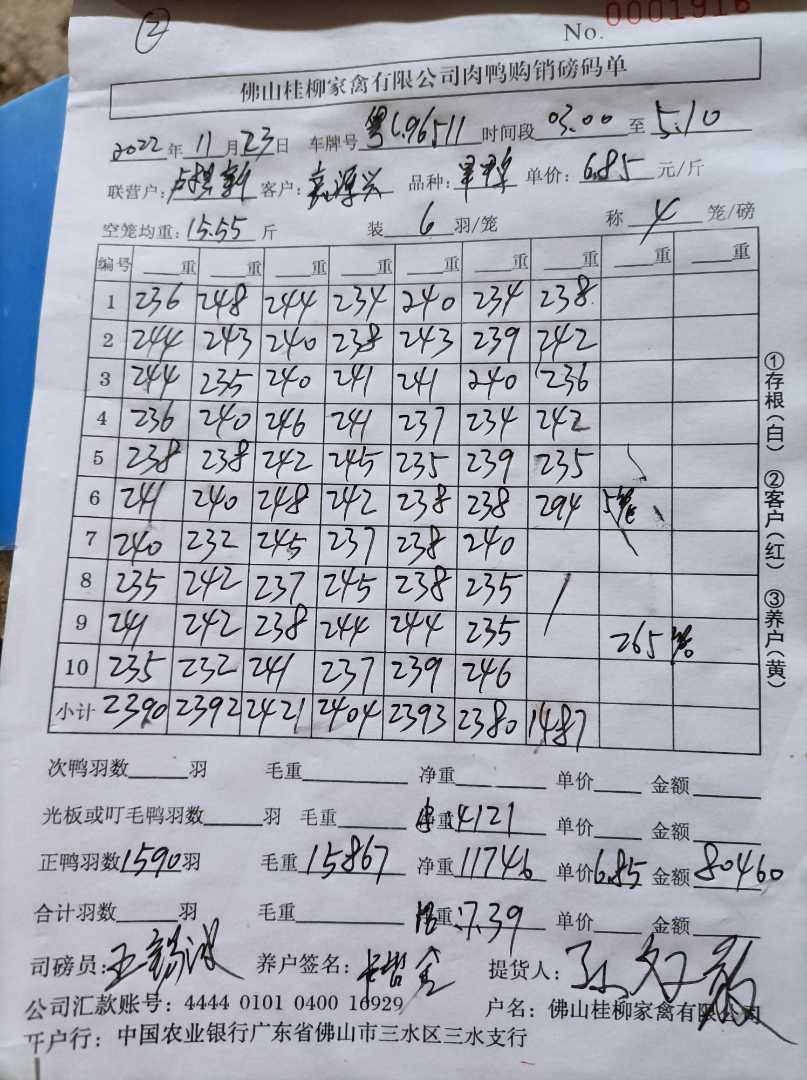 ②
No. 0001916
佛山桂柳家禽有限公司肉鸭购销磅码单
2022年 11月 23日 车牌号 粤L96511 时间段 03.00 至 5.10
联营户: 客户: 源兴 品种: 单价: 6.85 元/斤
空笼均重: 15.55 斤 装 6 羽/笼 称 4 笼/磅
编号 重 重 重 重 重 重 重 重 重
1 236 248 244 234 240 234 238
2 244 243 240 238 243 239 242
3 244 235 240 241 241 240 236
4 236 240 246 241 237 234 242
5 238 238 242 245 235 239 235
6 241 240 248 242 238 238 294 5笼
7 240 232 245 237 238 240
8 235 242 237 245 238 235
9 241 242 238 244 244 235 265笼
10 235 232 241 237 239 246
小计 2390 2392 2421 2404 2393 2380 1487
次鸭羽数 羽 毛重 净重 单价 金额
光板或叮毛鸭羽数 羽 毛重 重 4121 单价 金额
正鸭羽数 1590 羽 毛重 15867 净重 11746 单价 6.85 金额 80460
合计羽数 羽 毛重 重 7.39 单价 金额
司磅员: 王锡波 养户签名: 提货人:
公司汇款账号: 4444 0101 0400 16929 户名: 佛山桂柳家禽有限公司
开户行: 中国农业银行广东省佛山市三水区三水支行
①存根(白) ②客户(红) ③养户(黄)